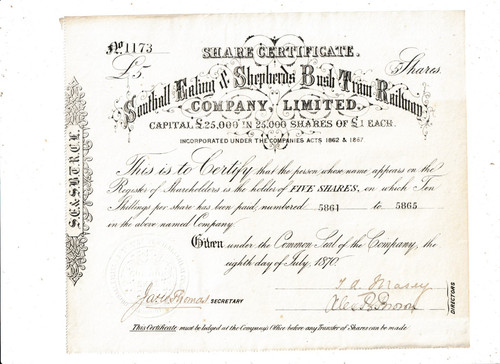 No. 1173
SHARE CERTIFICATE.
£5
5 Shares.
Southall Ealing & Shepherds Bush Tram Railway
COMPANY, LIMITED.
CAPITAL £25,000 IN 25,000 SHARES OF £1 EACH.
INCORPORATED UNDER THE COMPANIES ACTS 1862 & 1867.
This is to Certify that the person, whose name appears on the
Register of Shareholders is the holder of FIVE SHARES, on which Ten
Shillings per share has been paid, numbered 5861 to 5865
in the above named Company.
Given under the Common Seal of the Company, the
eighth day of July, 1870.
SECRETARY
DIRECTORS
This Certificate must be lodged at the Company's Office before any Transfer of Shares can be made.
S.E.& S.B.T.R.C.L.